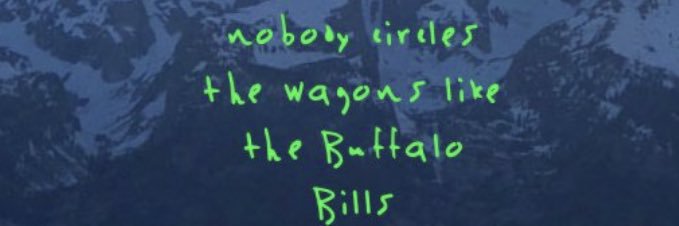 nobody circles
the wagons like
the Buffalo
Bills